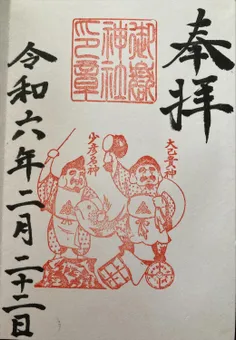 奉拝
御嶽
神社
印章
大己貴神
少彦名神
令和六年二月二十二日